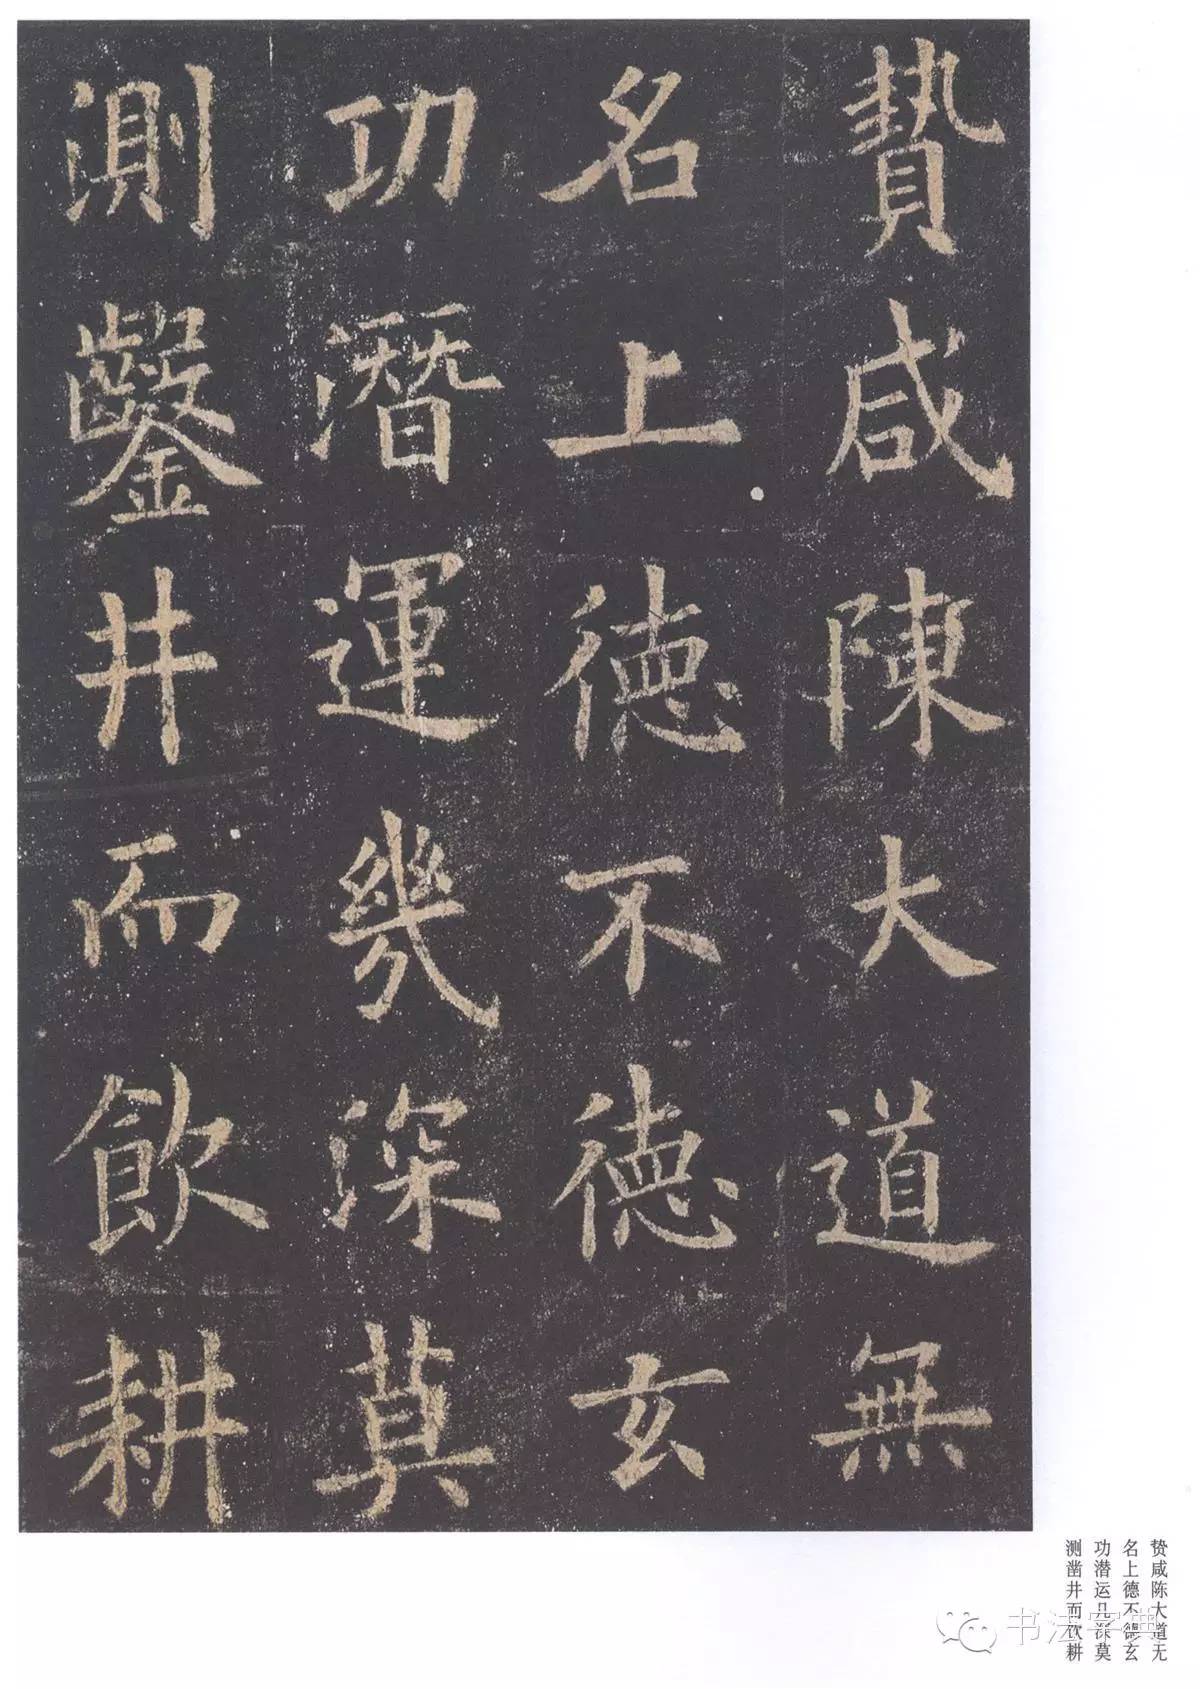 贄咸陳大道無
名上德不德玄
功潛運幾深莫
測鑿井而飲耕
贽咸陈大道无
名上德不德玄
功潜运几深莫
测凿井而饮耕
书法字典